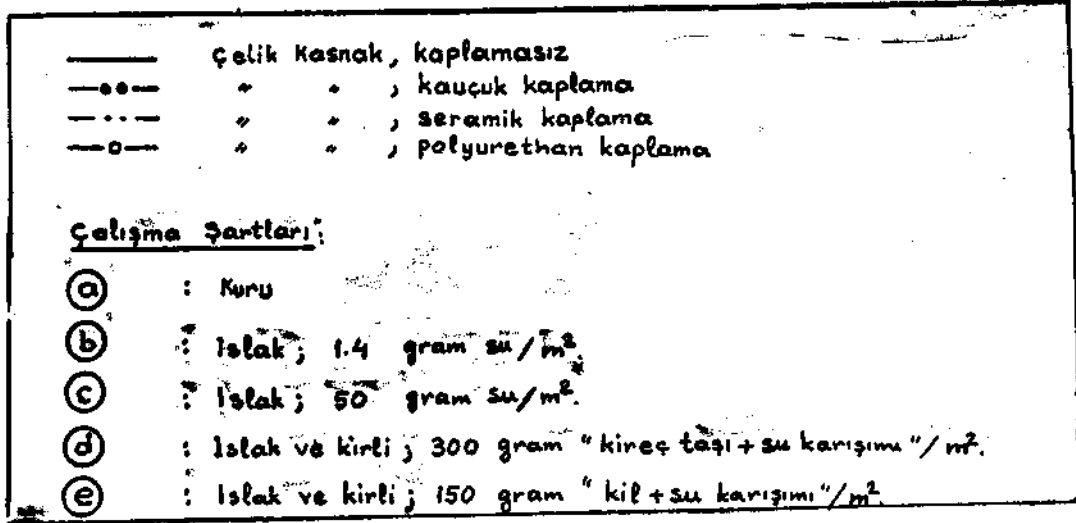 Çelik Kasnak, kaplamasız
" " , kauçuk kaplama
" " , seramik kaplama
" " , polyurethan kaplama
Çalışma Şartları:
a : Kuru
b : Islak; 1.4 gram su/m².
c : Islak; 50 gram su/m².
d : Islak ve kirli; 300 gram "kireç taşı + su karışımı"/m².
e : Islak ve kirli; 150 gram "kil + su karışımı"/m².